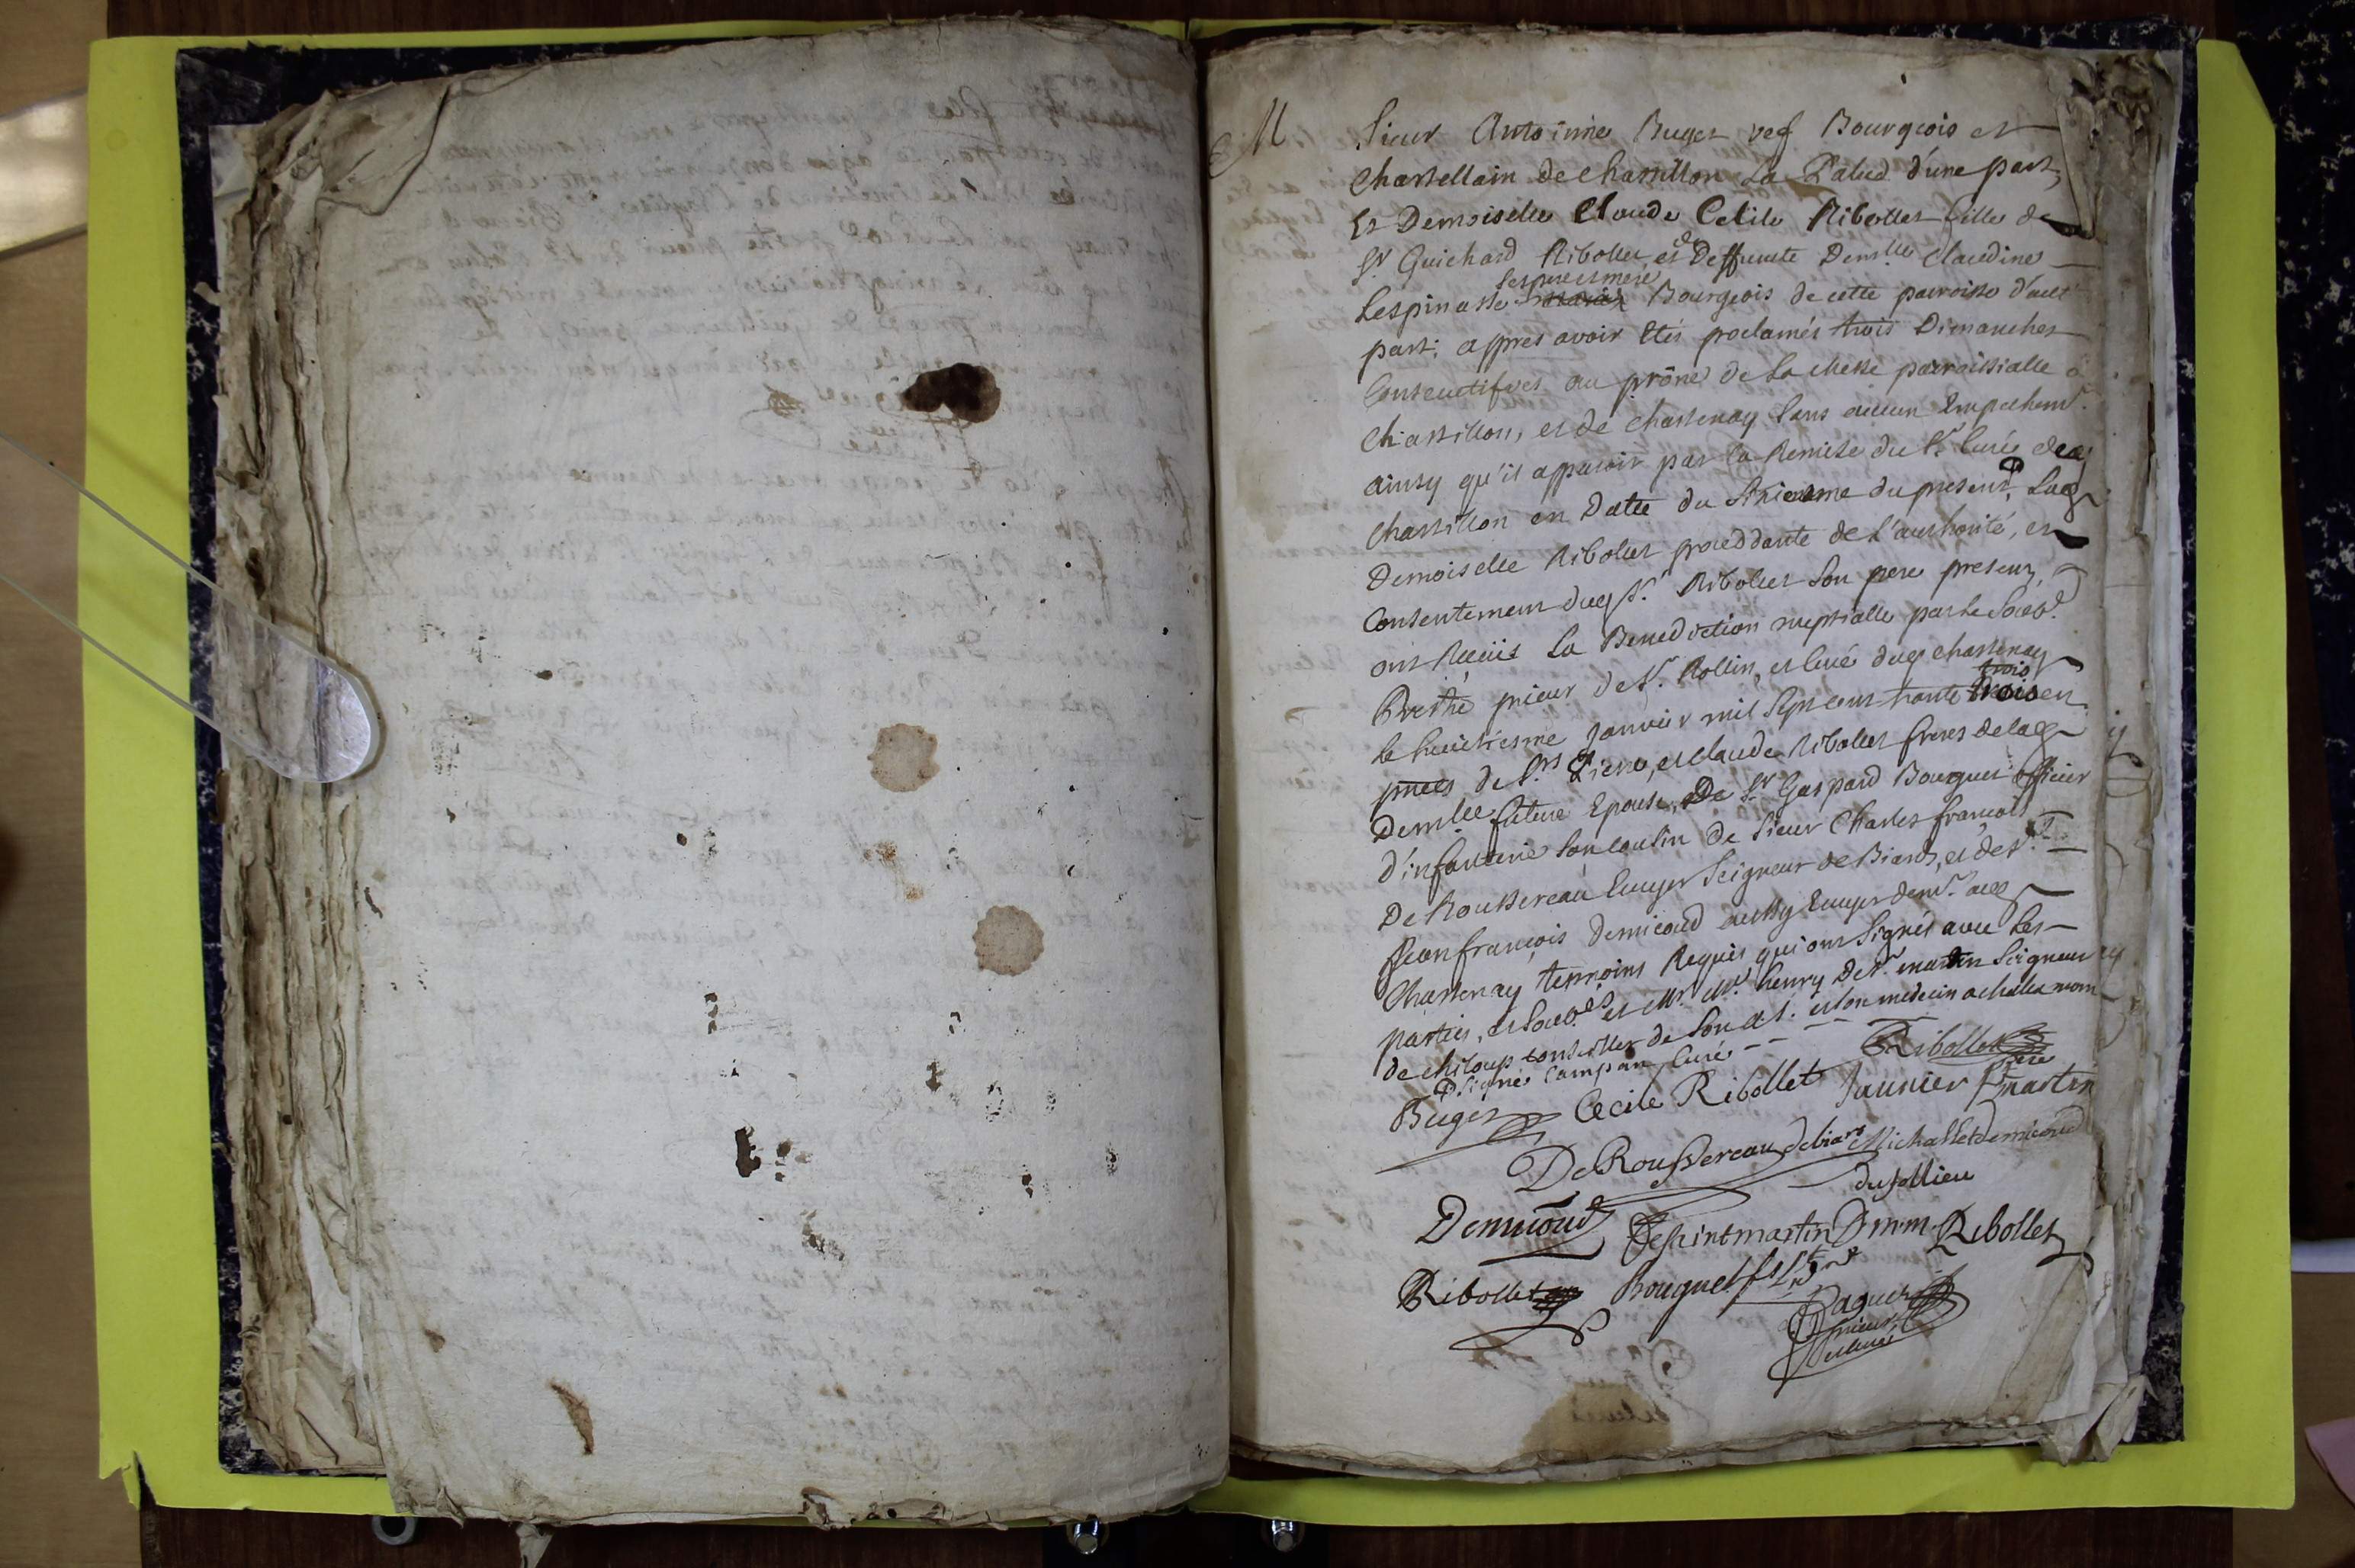 M
Sieur Antoinne Buget vef Bourgeois et
Chastellain de Chastillon La Palud d'une part,
Et Demoiselle Claude Cecile Ribollet fille de
Sr Guichard Ribollet et de Deffunte Demlle Claudine
ses pere et mere
Lespinasse Bourgeois de cette parroisse d'autt
part: appres avoir Etés proclamés trois Dimanches
Consecutifves au prône de La Messe parroissialle à
Chastillon, et de Chastenay Sans aucun Empechemt.
ainsy qu'il apparoit par La Remise du Sr. Curé de
Chastillon en Datte du Sixiesme du present, Lad
Demoiselle Ribollet proceddante de L'authorité, et
Consentement dud Sr. Ribollet Son pere present,
ont Reçüs La Benediction nuptialle par Le Soubd.
prieur de St. Rollin, et Curé dud Chastenay
trois
le huictiesme Janvier mil Sept cent trante trois en
pnces de Srs Piere, et Claude Ribollet freres de lad
Demlle future Epouse, De Sr Gaspard Bouguet officier
d'infanterie Son Cousin De Sieur Charles françois
De Roussereau Ecuyer Seigneur de Biards, et de Sr.
Jean françois Demicoud aussy Ecuyer demt. aud
Chastenay temoins Requis qui ont Signés avec Les
parties, et Soubes et Mr. Mr. henry de St. martin Seigneur
de chiloup Conseiller de Son A S. et Son medecin
Signé Campan, Curé
Ribollet pere
Buget Cecile Ribollet Jaunier Smartin
De Roussereau debiars Michallet demicoud
dufollieu
Demicoud Desaintmartin D m m. Ribollet
Ribollet Bouguet
Daguet
prieur
et Curé